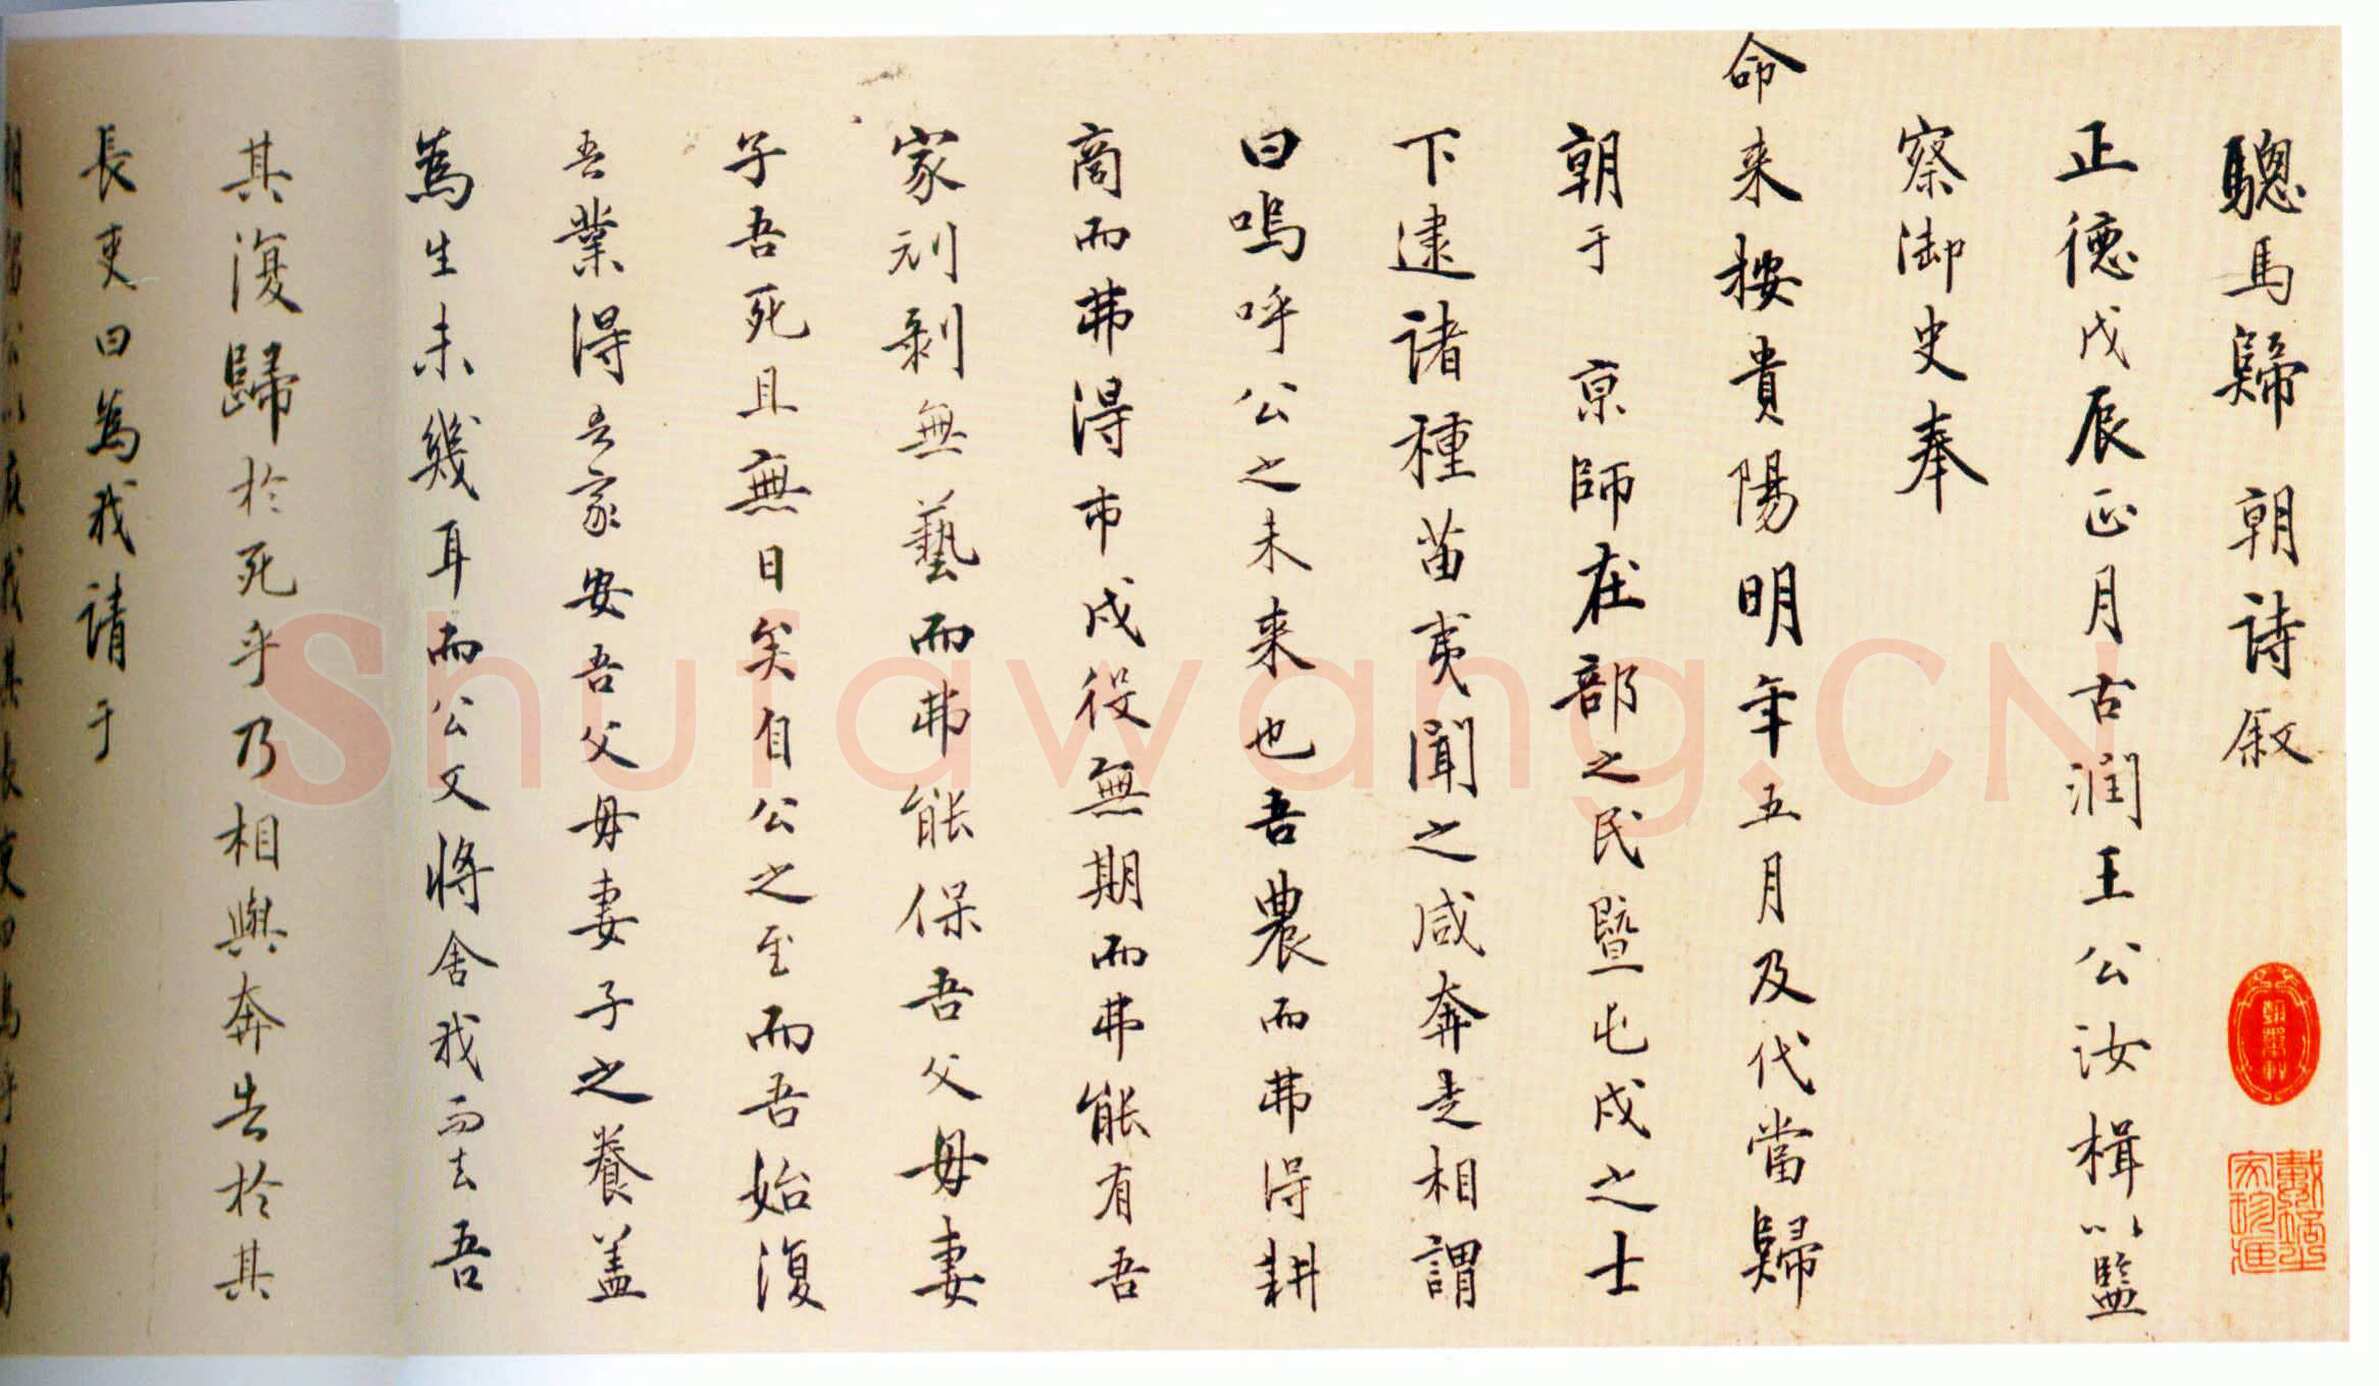 驄馬歸 朝詩敘
正德戊辰正月古潤王公汝楫以監
察御史奉
命来按貴陽明年五月及代當歸
朝于 京師在部之民暨屯戍之士
下逮諸種苗夷聞之咸奔走相謂
曰嗚呼公之未来也吾農而弗得耕
商而弗得市戍役無期而弗能有吾
家刓剥無藝而弗能保吾父母妻
子吾死且無日矣自公之至而吾始復
吾業得吾家安吾父母妻子之養盖
為生未幾耳而公又將舍我而去吾
其復歸於死乎乃相與奔告於其
長吏曰為我請于
Shufawang.CN